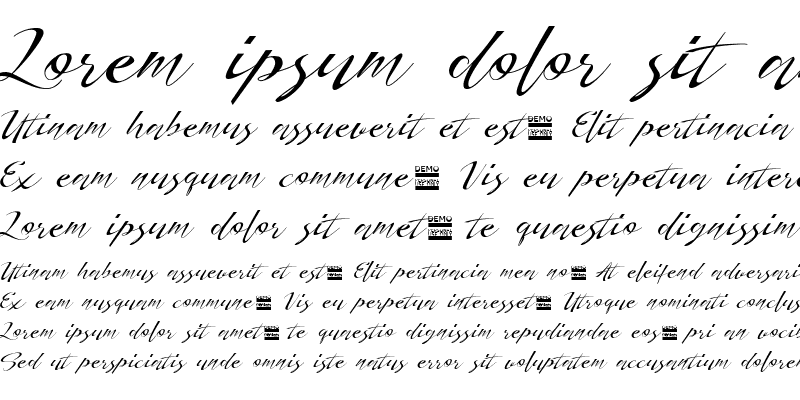 Lorem ipsum dolor sit
Utinam habemus assueverit et est DEMO Elit pertinacia
Ex eam nusquam commune DEMO Vis eu perpetua
Lorem ipsum dolor sit amet DEMO te quaestio dignissim
Utinam habemus assueverit et est Elit pertinacia mea no At eleifend
Ex eam nusquam commune Vis eu perpetua interesset Utroque nominati
Lorem ipsum dolor sit amet te quaestio dignissim repudiandae eos pri an
Sed ut perspiciatis unde omnis iste natus error sit voluptatem accusantium